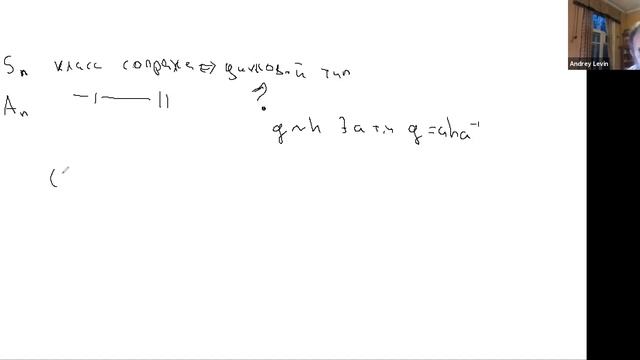 Sₙ класс сопряж ⇔ цикловой тип
Aₙ —ı— ||
?
g ~ h ∃ a т.ч g = aha⁻¹
(
Andrey Levin